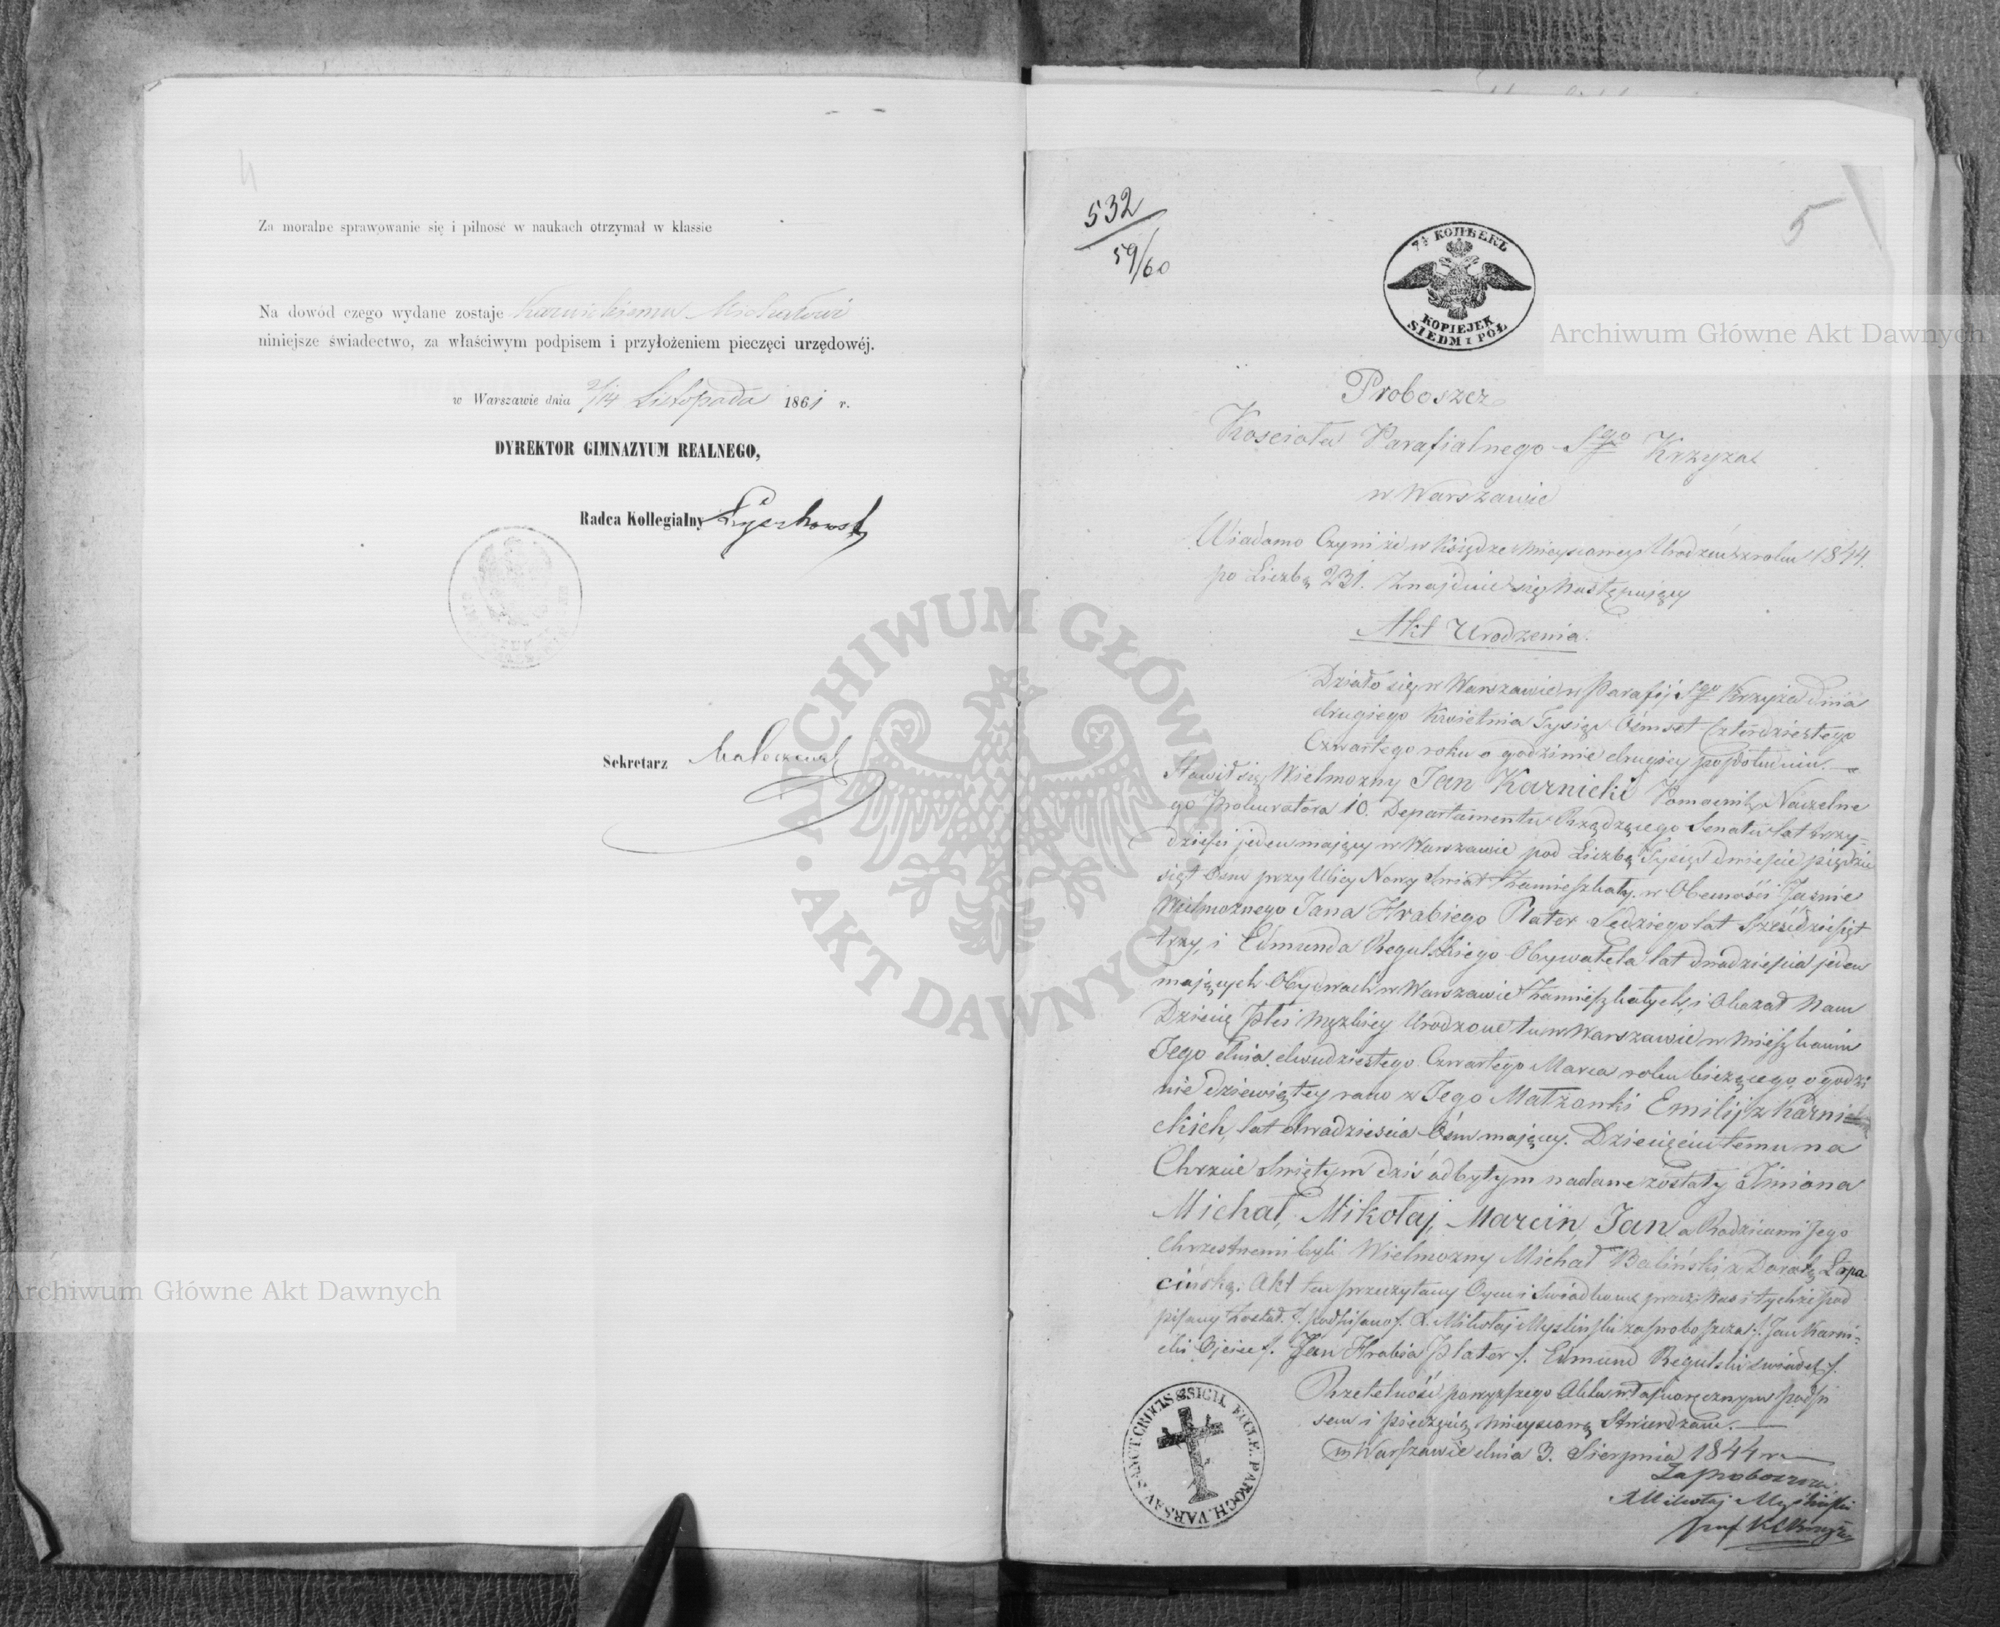 4
Za moralne sprawowanie się i pilność w naukach otrzymał w klassie
Na dowód czego wydane zostaje Karnickiemu Michałowi
niniejsze świadectwo, za właściwym podpisem i przyłożeniem pieczęci urzędowéj.
w Warszawie dnia 2/14 Listopada 1861 r.
DYREKTOR GIMNAZYUM REALNEGO,
Radca Kollegialny
Sekretarz
532
59/60
5
7½ КОПѢЕКЪ
KOPIEJEK
SIEDM I PÓŁ
Proboszcz
Kościoła Parafialnego Sgo Krzyża
w Warszawie
Wiadomo Czyni że w Księdze mieyscowey Urodzeń z roku 1844.
po Liczbą 231. Znajduie się następuiący
Akt Urodzenia.
Działo się w Warszawie w Parafij Sgo Krzyża dnia
drugiego Kwietnia Tysiąc Ośmset Czterdziestego
Czwartego roku o godzinie drugiey popołudniu.
Stawił się Wielmożny Jan Karnicki Pomocnik Naczelne
go Prokuratora 10. Departamentu Rządzącego Senatu lat trzy-
dzieści jeden mający w Warszawie pod Liczbą Tysiąc dwieście pięćdzie
siąt Ośm przy Ulicy Nowy Świat zamieszkały, w Obecności Jaśnie
Wielmożnego Jana Hrabiego Plater Sędziego lat Sześdziesiąt
trzy, i Edmunda Regulskiego Obywatela lat dwadzieścia jeden
mających Obydwóch w Warszawie zamieszkałych, i Okazał Nam
Dziecię płci męzkiey Urodzone tu w Warszawie w mieszkaniu
Jego dnia dwudziestego Czwartego Marca roku bieżącego o godzi
nie dziewiątey rano z Jego Małżonki Emilij z Karni
ckich, lat dwadzieścia Ośm mający. Dziecięciu temu na
Chrzcie Świętym dziś odbytym nadane zostały Imiona
Michał, Mikołaj, Marcin, Jan a Rodzicami Jego
Chrzestnemi byli Wielmożny Michał Baliński z Dorotą Łopa
cińską. Akt ten przeczytany Oycu i Świadkom przez Nas i tychże pod
pisany został. /. podpisano /. X. Mikołaj Myśliński za proboszcza /. Jan Karni-
cki Ojciec /. Jan Hrabia Plater /. Edmund Regulski świadek /.
Rzetelność powyższego Aktu własnoręcznym podpi
sem i pieczęcią mieyscową Stwierdzam.
w Warszawie dnia 3. Sierpnia 1844 r
Za Proboszcza
X Mikołaj Myśliński
SIGIL. ECCLE. PAROCH. VARSAV. SANCT. CRUCIS
ARCHIWUM GŁÓWNE AKT DAWNYCH
Archiwum Główne Akt Dawnych
Archiwum Główne Akt Dawnych